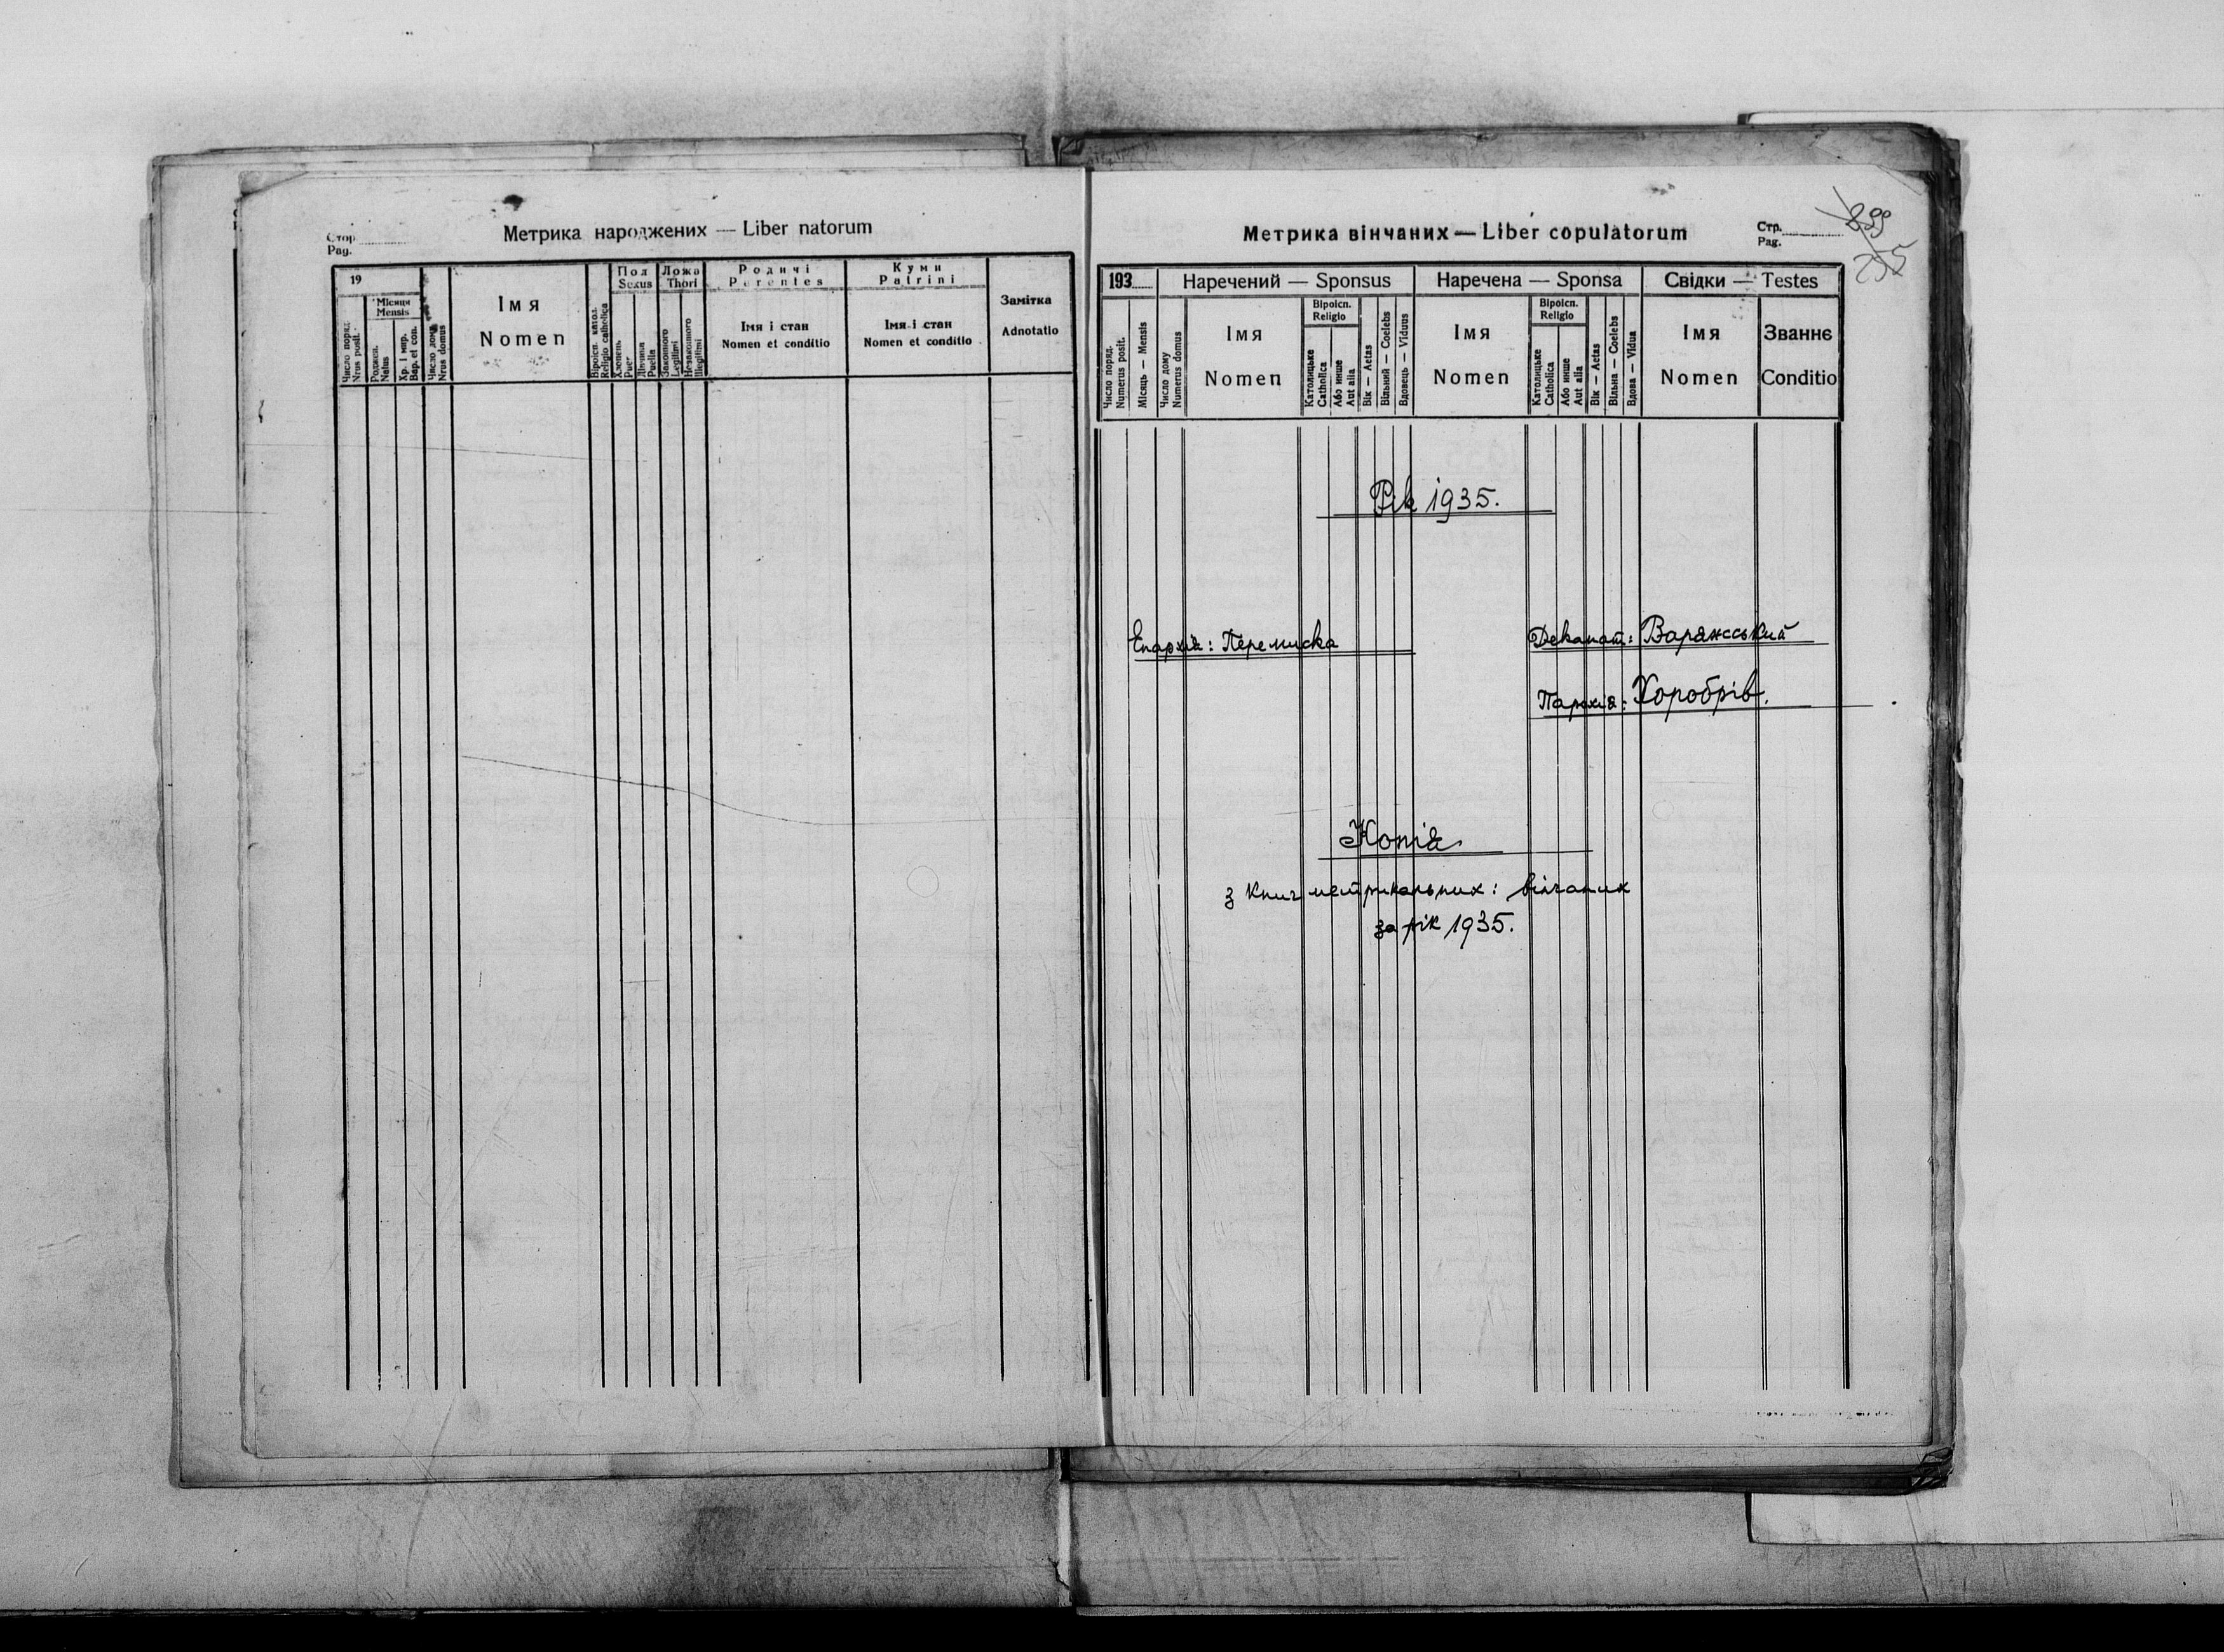 Стор.
Pag.
Метрика народжених — Liber natorum
19
Місяця
Mensis
Число поряд.
Nrus posit.
Роджен.
Natus
Хр. і мир.
Bap. et con.
Число дому
Nrus domus
Імя
Nomen
Віроісп. катол.
Religio catholica
Пол
Sexus
Хлопець
Puer
Дівчина
Puella
Ложа
Thori
Законного
Legitimi
Незаконного
Illegitimi
Родичі
Parentes
Імя і стан
Nomen et conditio
Куми
Patrini
Імя і стан
Nomen et conditio
Замітка
Adnotatio
Метрика вінчаних — Liber copulatorum
Стр.
Pag.
299
255
193
Число поряд.
Numerus posit.
Місяць — Mensis
Число дому
Numerus domus
Наречений — Sponsus
Імя
Nomen
Віроісп.
Religio
Католицьке
Catholica
Або инше
Aut alia
Вік — Aetas
Вільний — Coelebs
Вдовець — Viduus
Наречена — Sponsa
Імя
Nomen
Віроісп.
Religio
Католицьке
Catholica
Або инше
Aut alia
Вік — Aetas
Вільна — Coelebs
Вдова — Vidua
Свідки — Testes
Імя
Nomen
Званнє
Conditio
Рік 1935.
Епархія: Перемиска
Деканат: Варяжсський
Парохія: Хоробрів.
Копія
з книг метрикальних: вінчаних
за рік 1935.